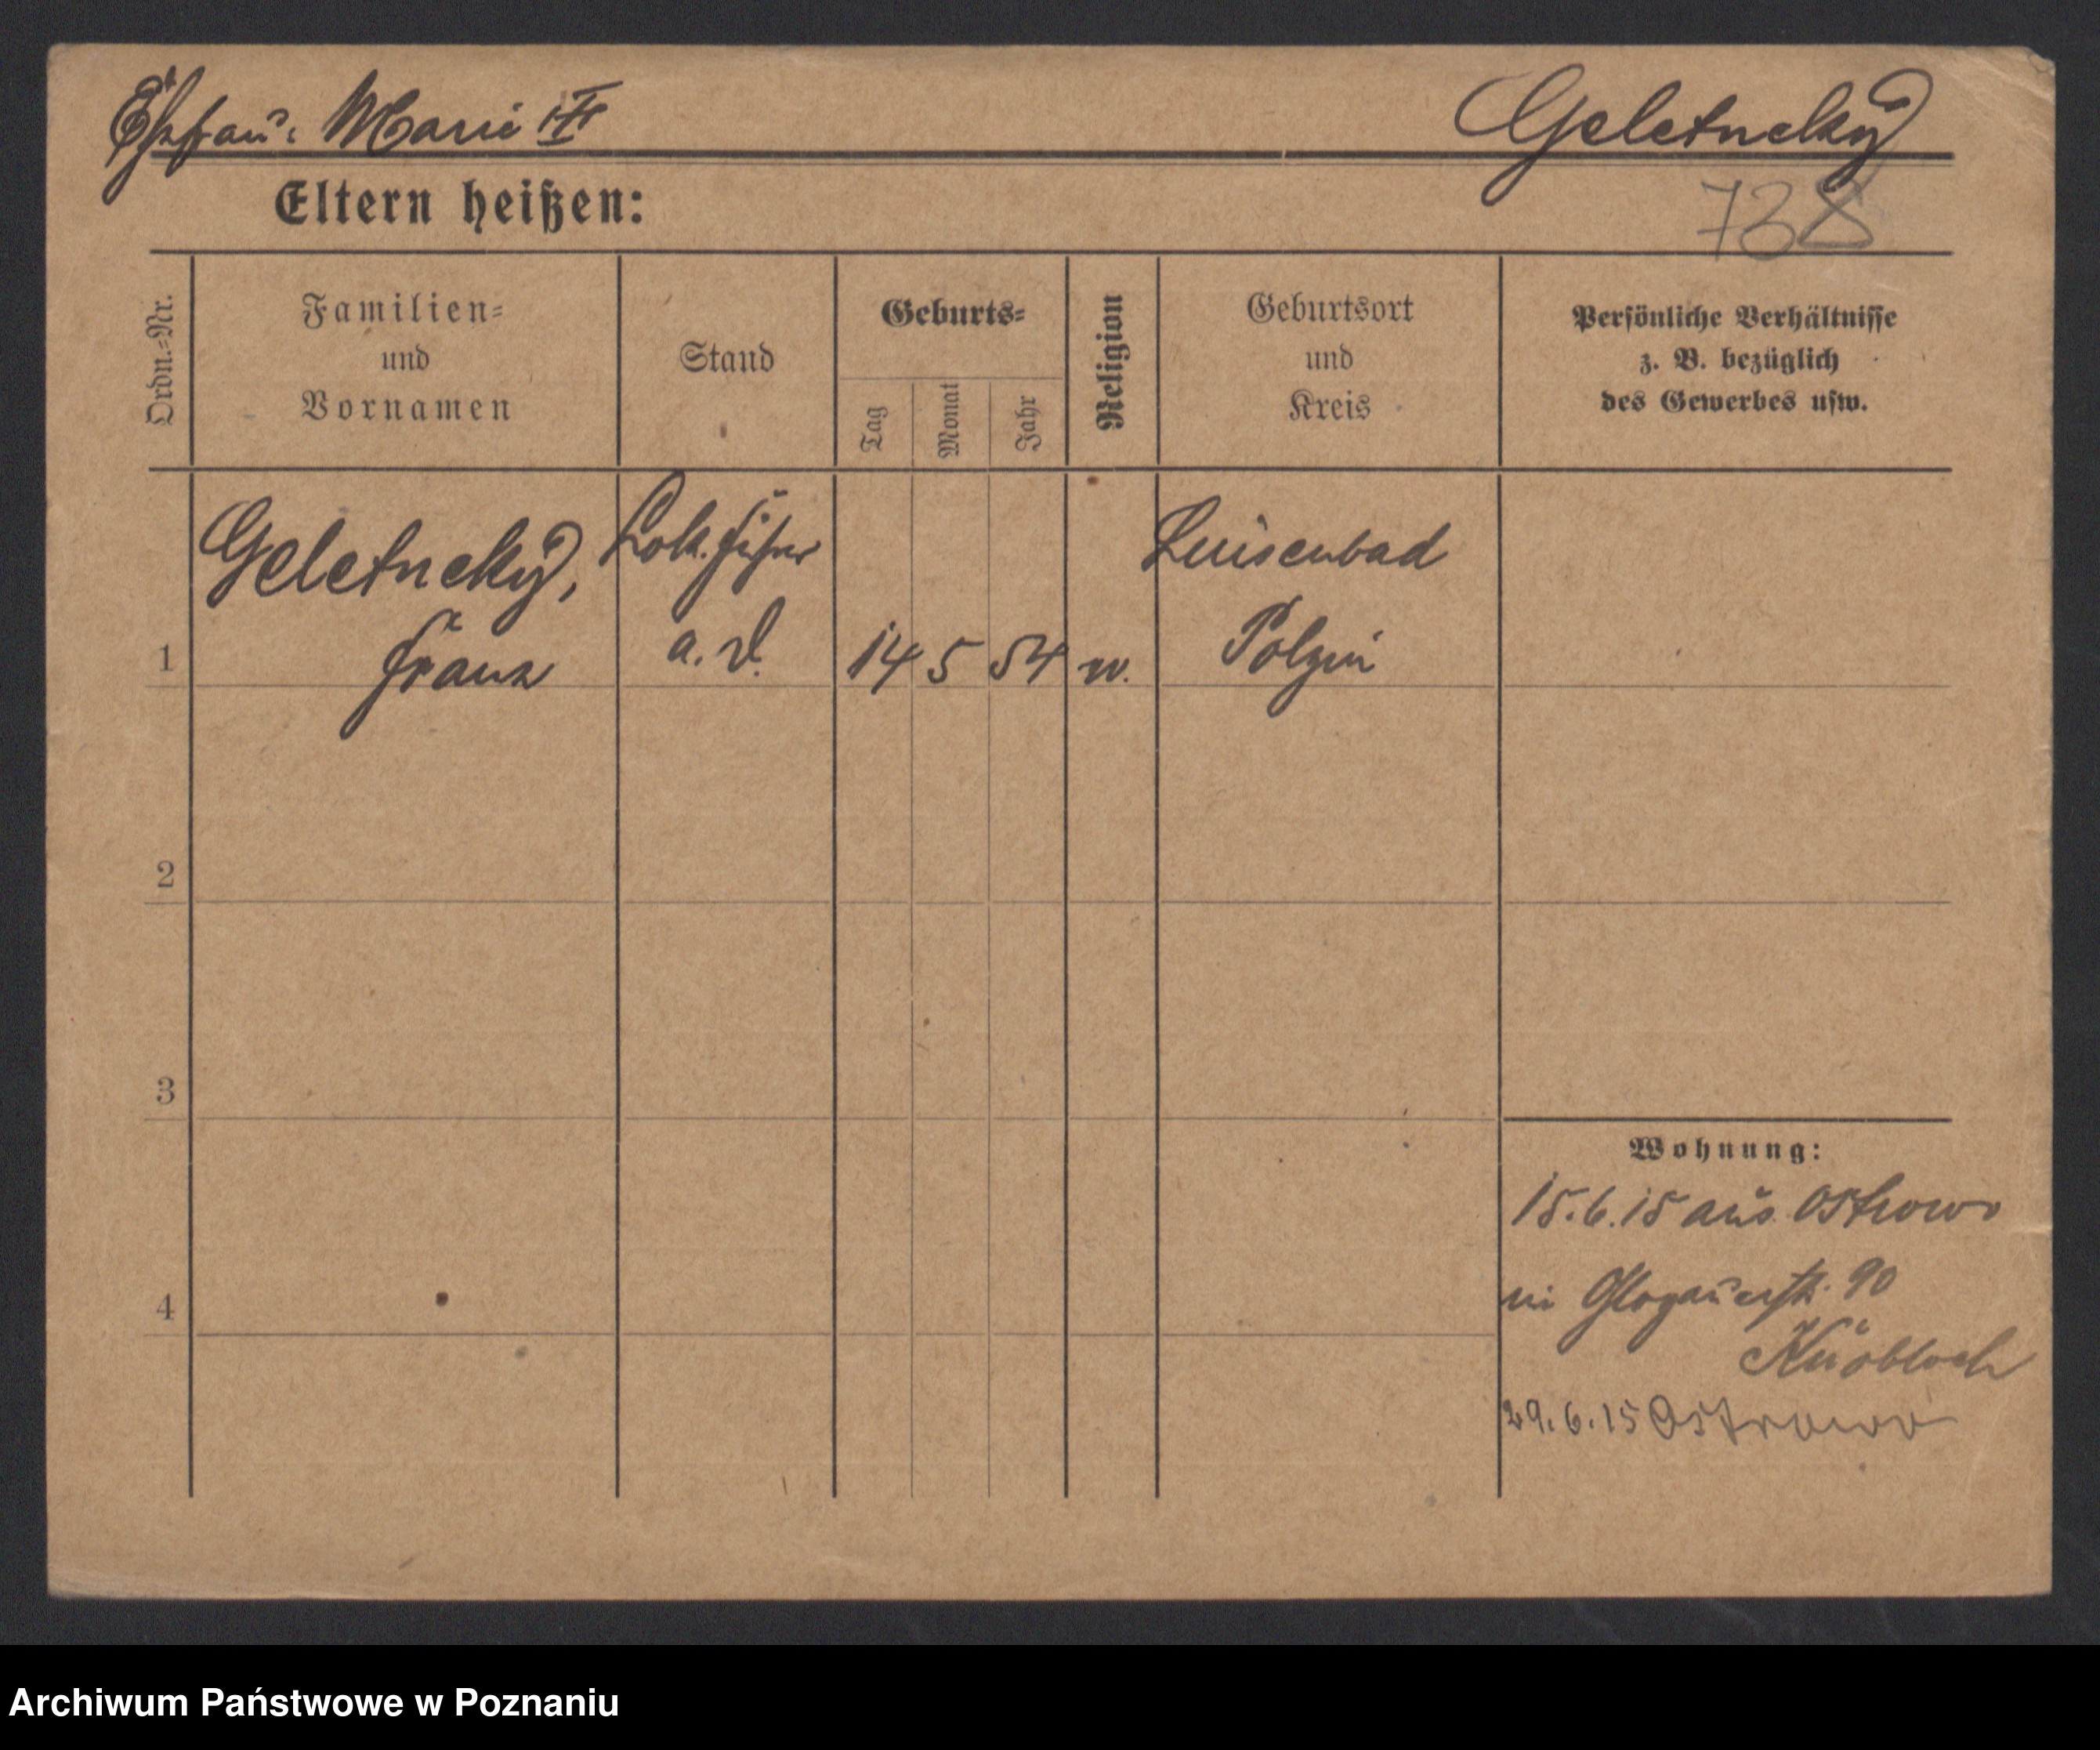 Ehefrau: Marie III Geletneky
738
Eltern heißen:
Ordn.=Nr.
Familien=
und
Vornamen
Stand
Geburts=
Tag
Monat
Jahr
Religion
Geburtsort
und
Kreis
Persönliche Verhältnisse
z. B. bezüglich
des Gewerbes usw.
Geletneky, Lok.führer Luisenbad
1 Franz a. D. 14 5 54 Polzin
2
3
4
Wohnung:
15.6.15 aus Ostrowo
Glogauerstr. 90
29.6.15 Ostrowo
Archiwum Państwowe w Poznaniu